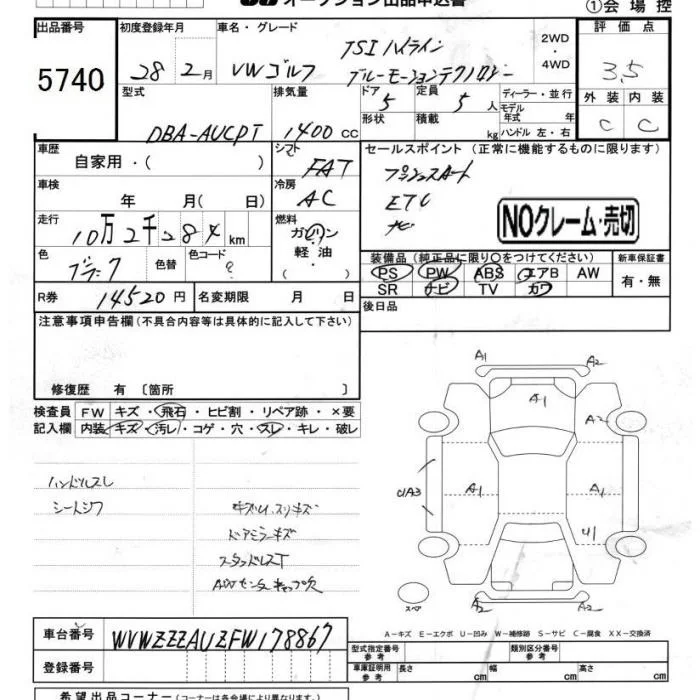 オークション出品申込書
①会場控
出品番号
5740
初度登録年月
28 2月
車名・グレード
VWゴルフ
TSI ハイライン
ブルーモーションテクノロジー
2WD
・
4WD
評価点
3.5
外装 内装
C C
型式
DBA-AUCPT
排気量
1400 cc
ドア 5
定員 5人
形状
積載 kg
ディーラー・並行
モデル年式 年
ハンドル 左・右
車歴
自家用・( )
シフト
FAT
セールスポイント (正常に機能するものに限ります)
プッシュスタート
ETC
ナビ
NOクレーム・売切
車検
年 月( 日)
冷房
AC
走行
10万2千284 km
燃料
ガソリン
軽油
・( )
色
ブラック
色替
色コード
R券 14520円
名変期限 月 日
装備品 (純正品に限り○をつけてください)
PS PW ABS エアB AW
SR ナビ TV カワ
新車保証書
有・無
後日品
注意事項申告欄 (不具合内容等は具体的に記入して下さい)
修復歴 有 〔箇所 〕
検査員記入欄
FW キズ・飛石・ヒビ割・リペア跡・×要
内装 キズ・汚レ・コゲ・穴・スレ・キレ・破レ
ハンドルスレ
シートシワ
キズ凹、スリキズ
ドアミラーキズ
スタッドレスT
AWセンターキャップ欠
A1 A2
A1
A2
A3
A1 A1
U1
A2 A2
スペア
A-キズ E-エクボ U-凹み W-補修跡 S-サビ C-腐食 XX-交換済
車台番号
WVWZZZAUZFW178867
登録番号
型式指定番号
参考
類別区分番号
参考
車庫証明用
参考
長さ cm
幅 cm
高さ cm
希望出品コーナー (コーナーは各会場により異なります。)